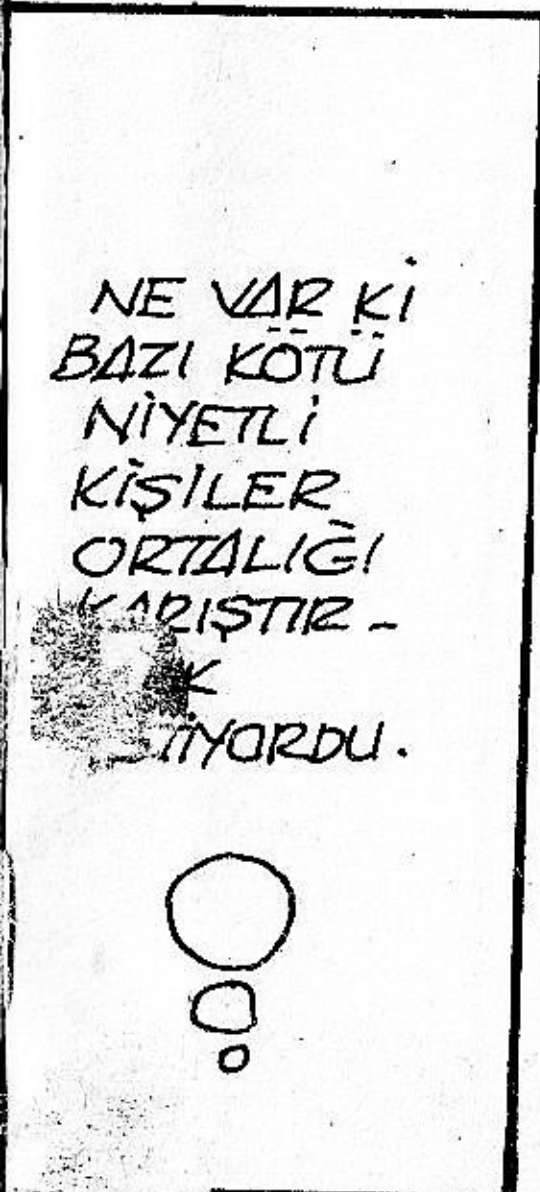 NE VAR Kİ
BAZI KÖTÜ
NİYETLİ
KİŞİLER
ORTALIĞI
KARIŞTIR-